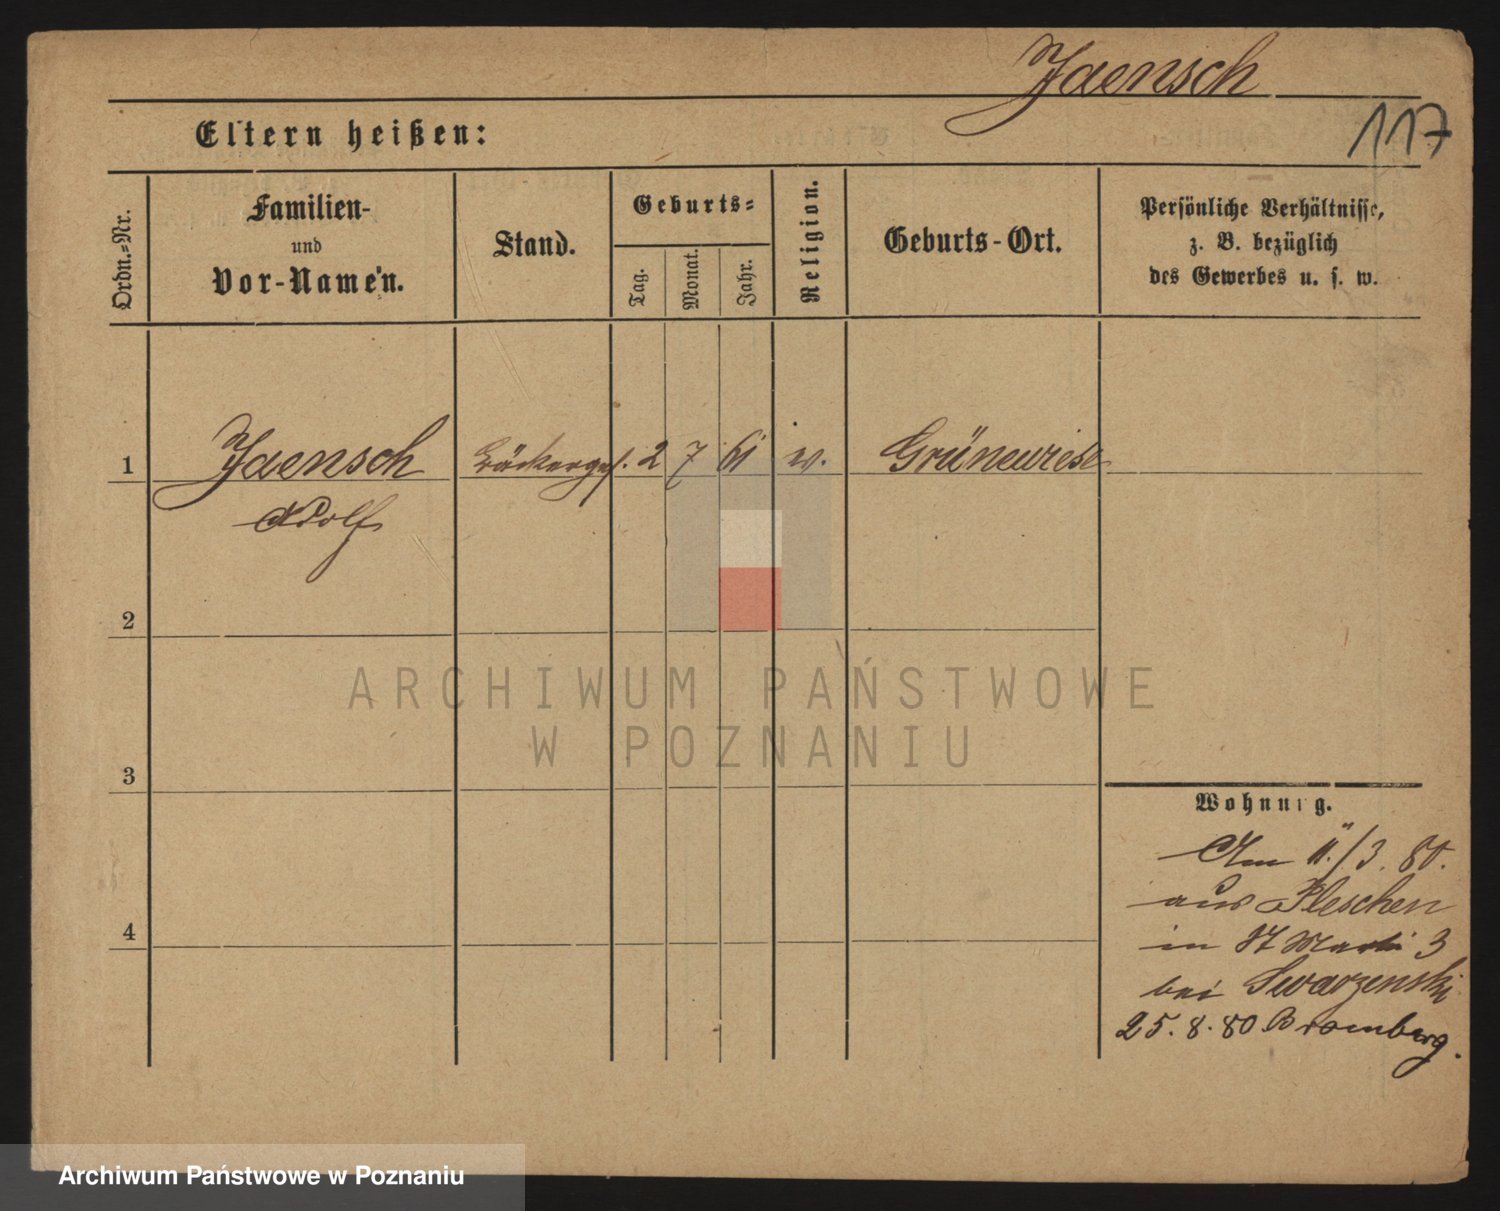 Jaensch
117
Eltern heißen:
Ordn.-Nr.
Familien-
und
Vor-Namen.
Stand.
Geburts-
Tag.
Monat.
Jahr.
Religion.
Geburts-Ort.
Persönliche Verhältnisse,
z. B. bezüglich
des Gewerbes u. s. w.
1 Jaensch Bäckerges. 2 7 61 Grünewiese
Adolf
2
3
4
Wohnung.
Am 11./3. 80.
aus Pleschen
in St Martin 3
bei Swarzenski
25. 8. 80 Bromberg.
ARCHIWUM PAŃSTWOWE
W POZNANIU
Archiwum Państwowe w Poznaniu